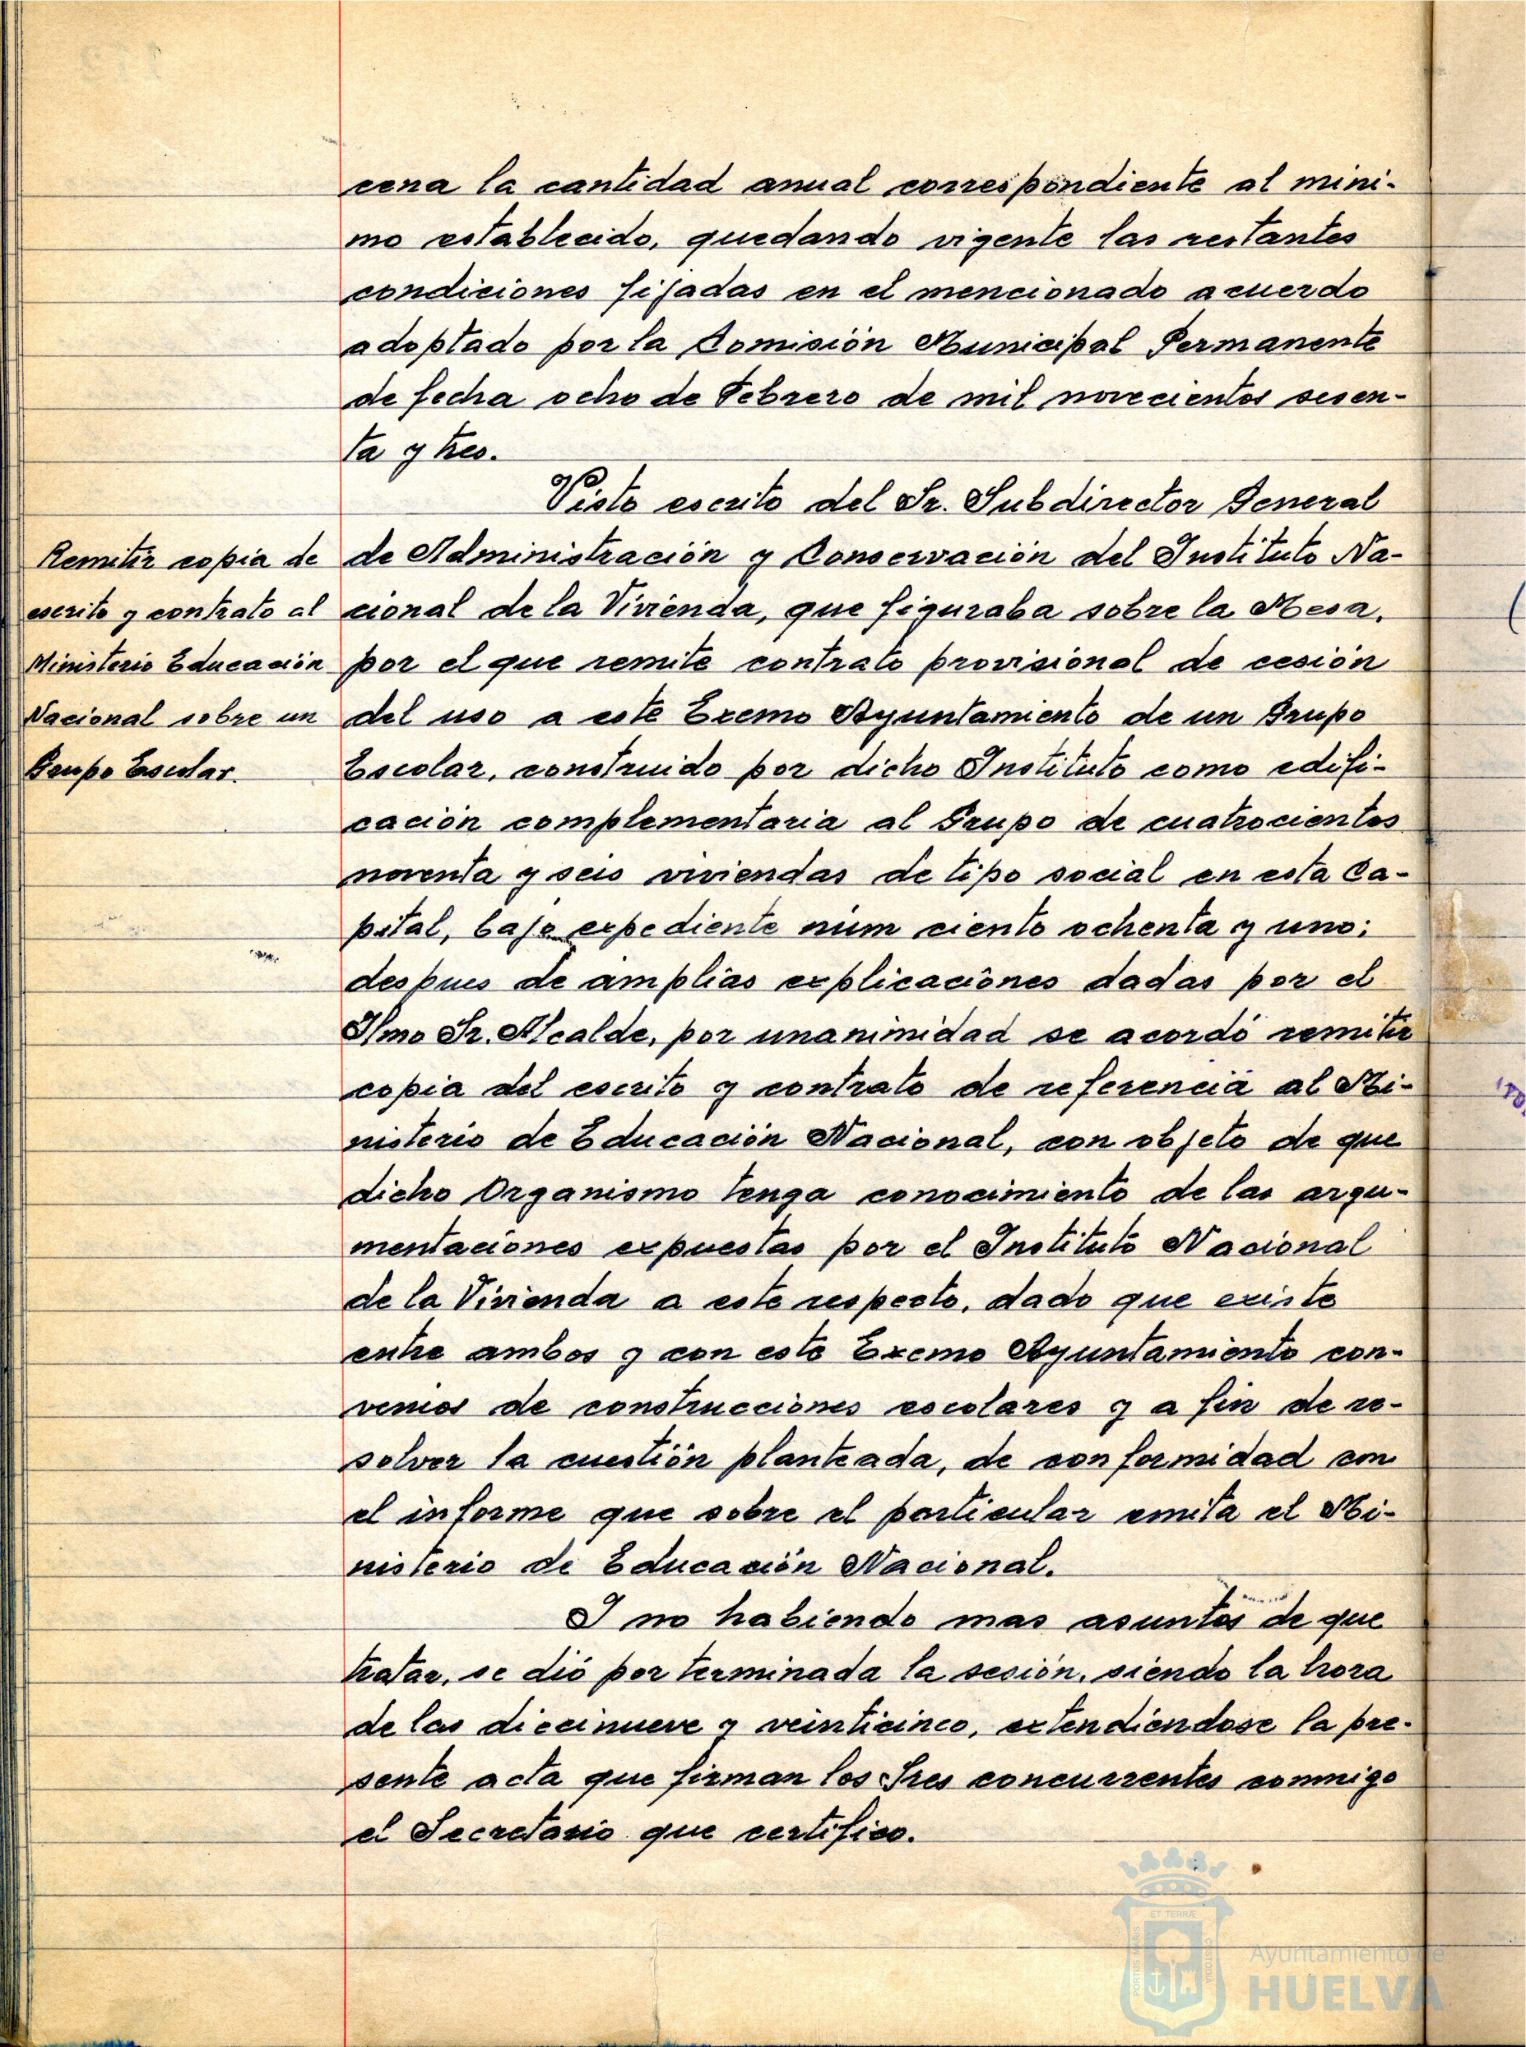 cena la cantidad anual correspondiente al mini-
mo establecido, quedando vigente las restantes
condiciones fijadas en el mencionado acuerdo
adoptado por la Comisión Municipal Permanente
de fecha ocho de Febrero de mil novecientos sesen-
ta y tres.
Visto escrito del Sr. Subdirector General
de Administración y Conservación del Instituto Na-
cional de la Vivienda, que figuraba sobre la Mesa,
por el que remite contrato provisional de cesión
del uso a este Excmo Ayuntamiento de un Grupo
Escolar, construido por dicho Instituto como edifi-
cación complementaria al Grupo de cuatrocientos
noventa y seis viviendas de tipo social en esta Ca-
pital, bajo expediente núm ciento ochenta y uno;
despues de amplias explicaciónes dadas por el
Ilmo Sr. Alcalde, por unanimidad se acordó remitir
copia del escrito y contrato de referencia al Mi-
nisterio de Educación Nacional, con objeto de que
dicho Organismo tenga conocimiento de las argu-
mentaciónes expuestas por el Instituto Nacional
de la Vivienda a este respecto, dado que existe
entre ambos y con este Excmo Ayuntamiento con-
venios de construcciones escolares y a fin de re-
solver la cuestión planteada, de conformidad con
el informe que sobre el particular emita el Mi-
nisterio de Educación Nacional.
I no habiendo mas asuntos de que
tratar, se dió por terminada la sesión, siendo la hora
de las diecinueve y veinticinco, extendiéndose la pre-
sente acta que firman los Sres concurrentes conmigo
el Secretario que certifico.
Remitir copia de
escrito y contrato al
Ministerio Educación
Nacional sobre un
Grupo Escolar.
ET TERRÆ
PORTUS MARIS
CUSTODIA
Ayuntamiento de
HUELVA